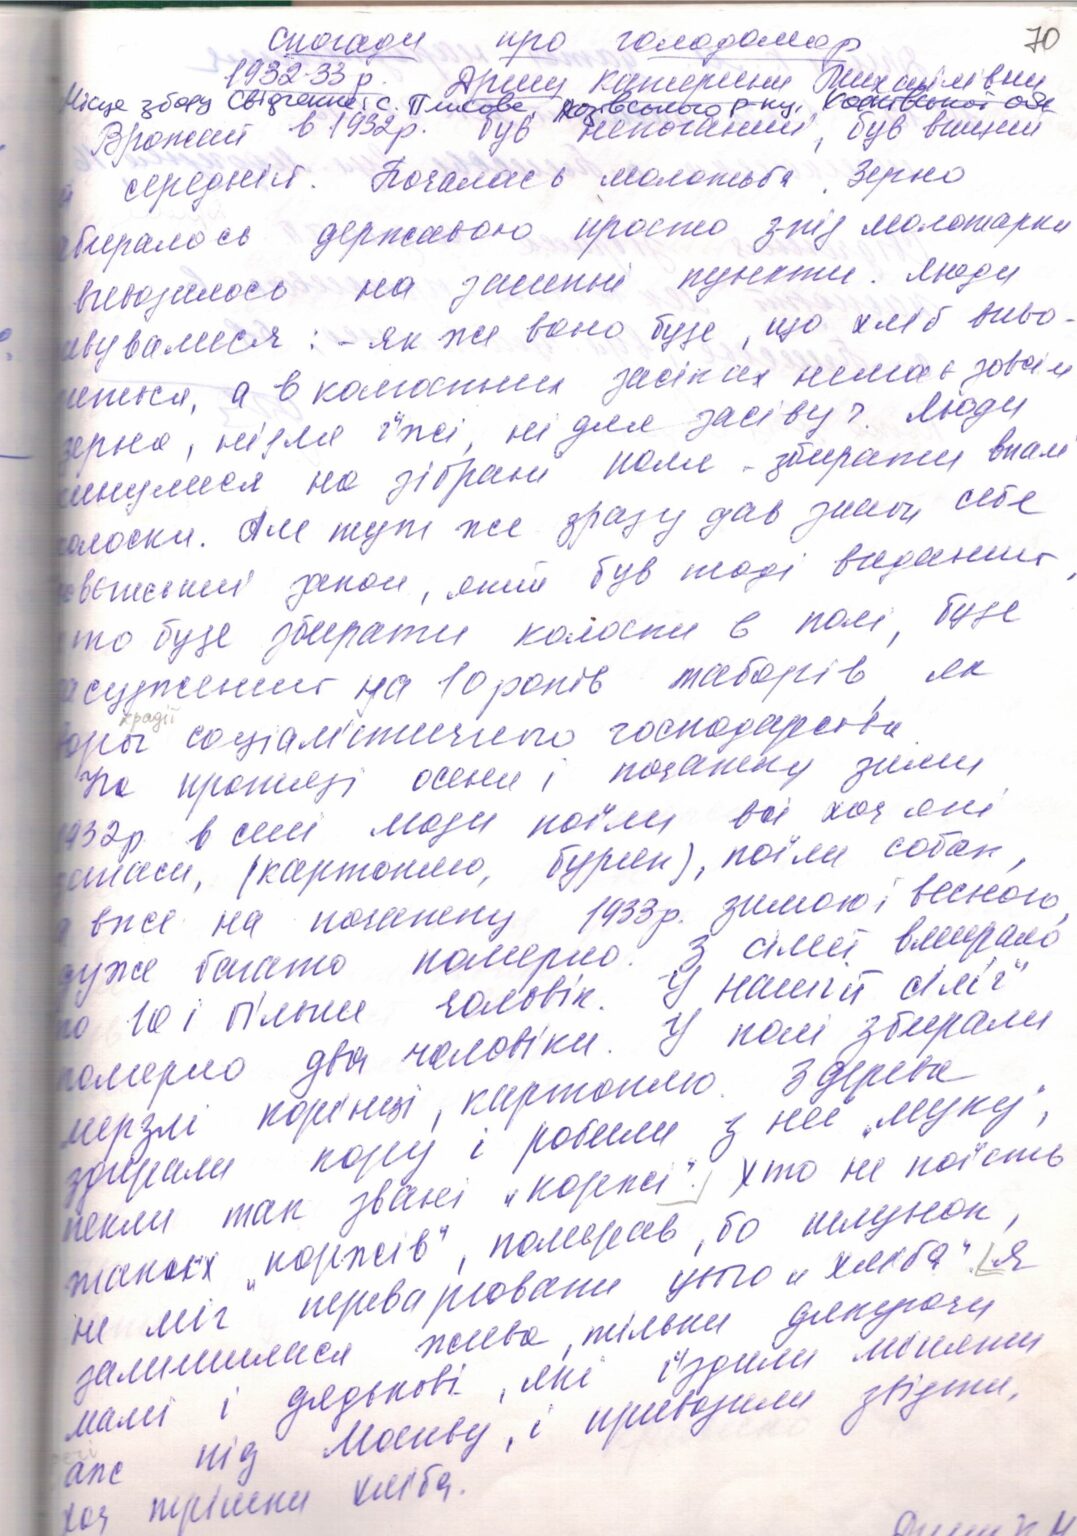 70
Спогади про голодомор
1932-33 р. Катерини Михайлівни
Місце збору свідчення: с. Пискове, р-ну, обл
Врожай в 1932р. був непоганий, був вищий
середній. Почалась молотьба. Зерно
биралось державою просто з під молотарки
вивозилось на заготні пункти. Люди
вувалися: - як же воно буде, що хліб виво-
зиться, а в колгоспних засіках немає зовсім
зерна, ні для їжі, ні для засіву? Люди
кинулися на зібрані поля - збирати впалі
колоски. Але тут же зразу дав знати себе
закон, який був тоді виданий,
хто буде збирати колоски в полі, буде
засуджений на 10 років таборів, як
крадії
воры соціалістичного господарства
На протязі осени і початку зими
1932р. в селі люди поїли всі хоч які
запаси, (картоплю, буряк), поїли собак,
а вже на початку 1933р. зимою і весною,
дуже багато померло. З сімей вмирало
по 10 і більше чоловік. У нашій сім'ї
померло два чоловіки. У полі збирали
мерзлі корінці, картоплю. З дерева
здирали кору і робили з неї „муку",
пекли так звані „коржі". Хто не поїсть
таких „коржів", помирав, бо шлунок,
не міг перевартовати цього „хліба". Я
залишилася жива, тільки дякуючи
мамі і дядькові, які їздили міняти
аж під Москву, і привозили звідти,
хоч трішки хліба.